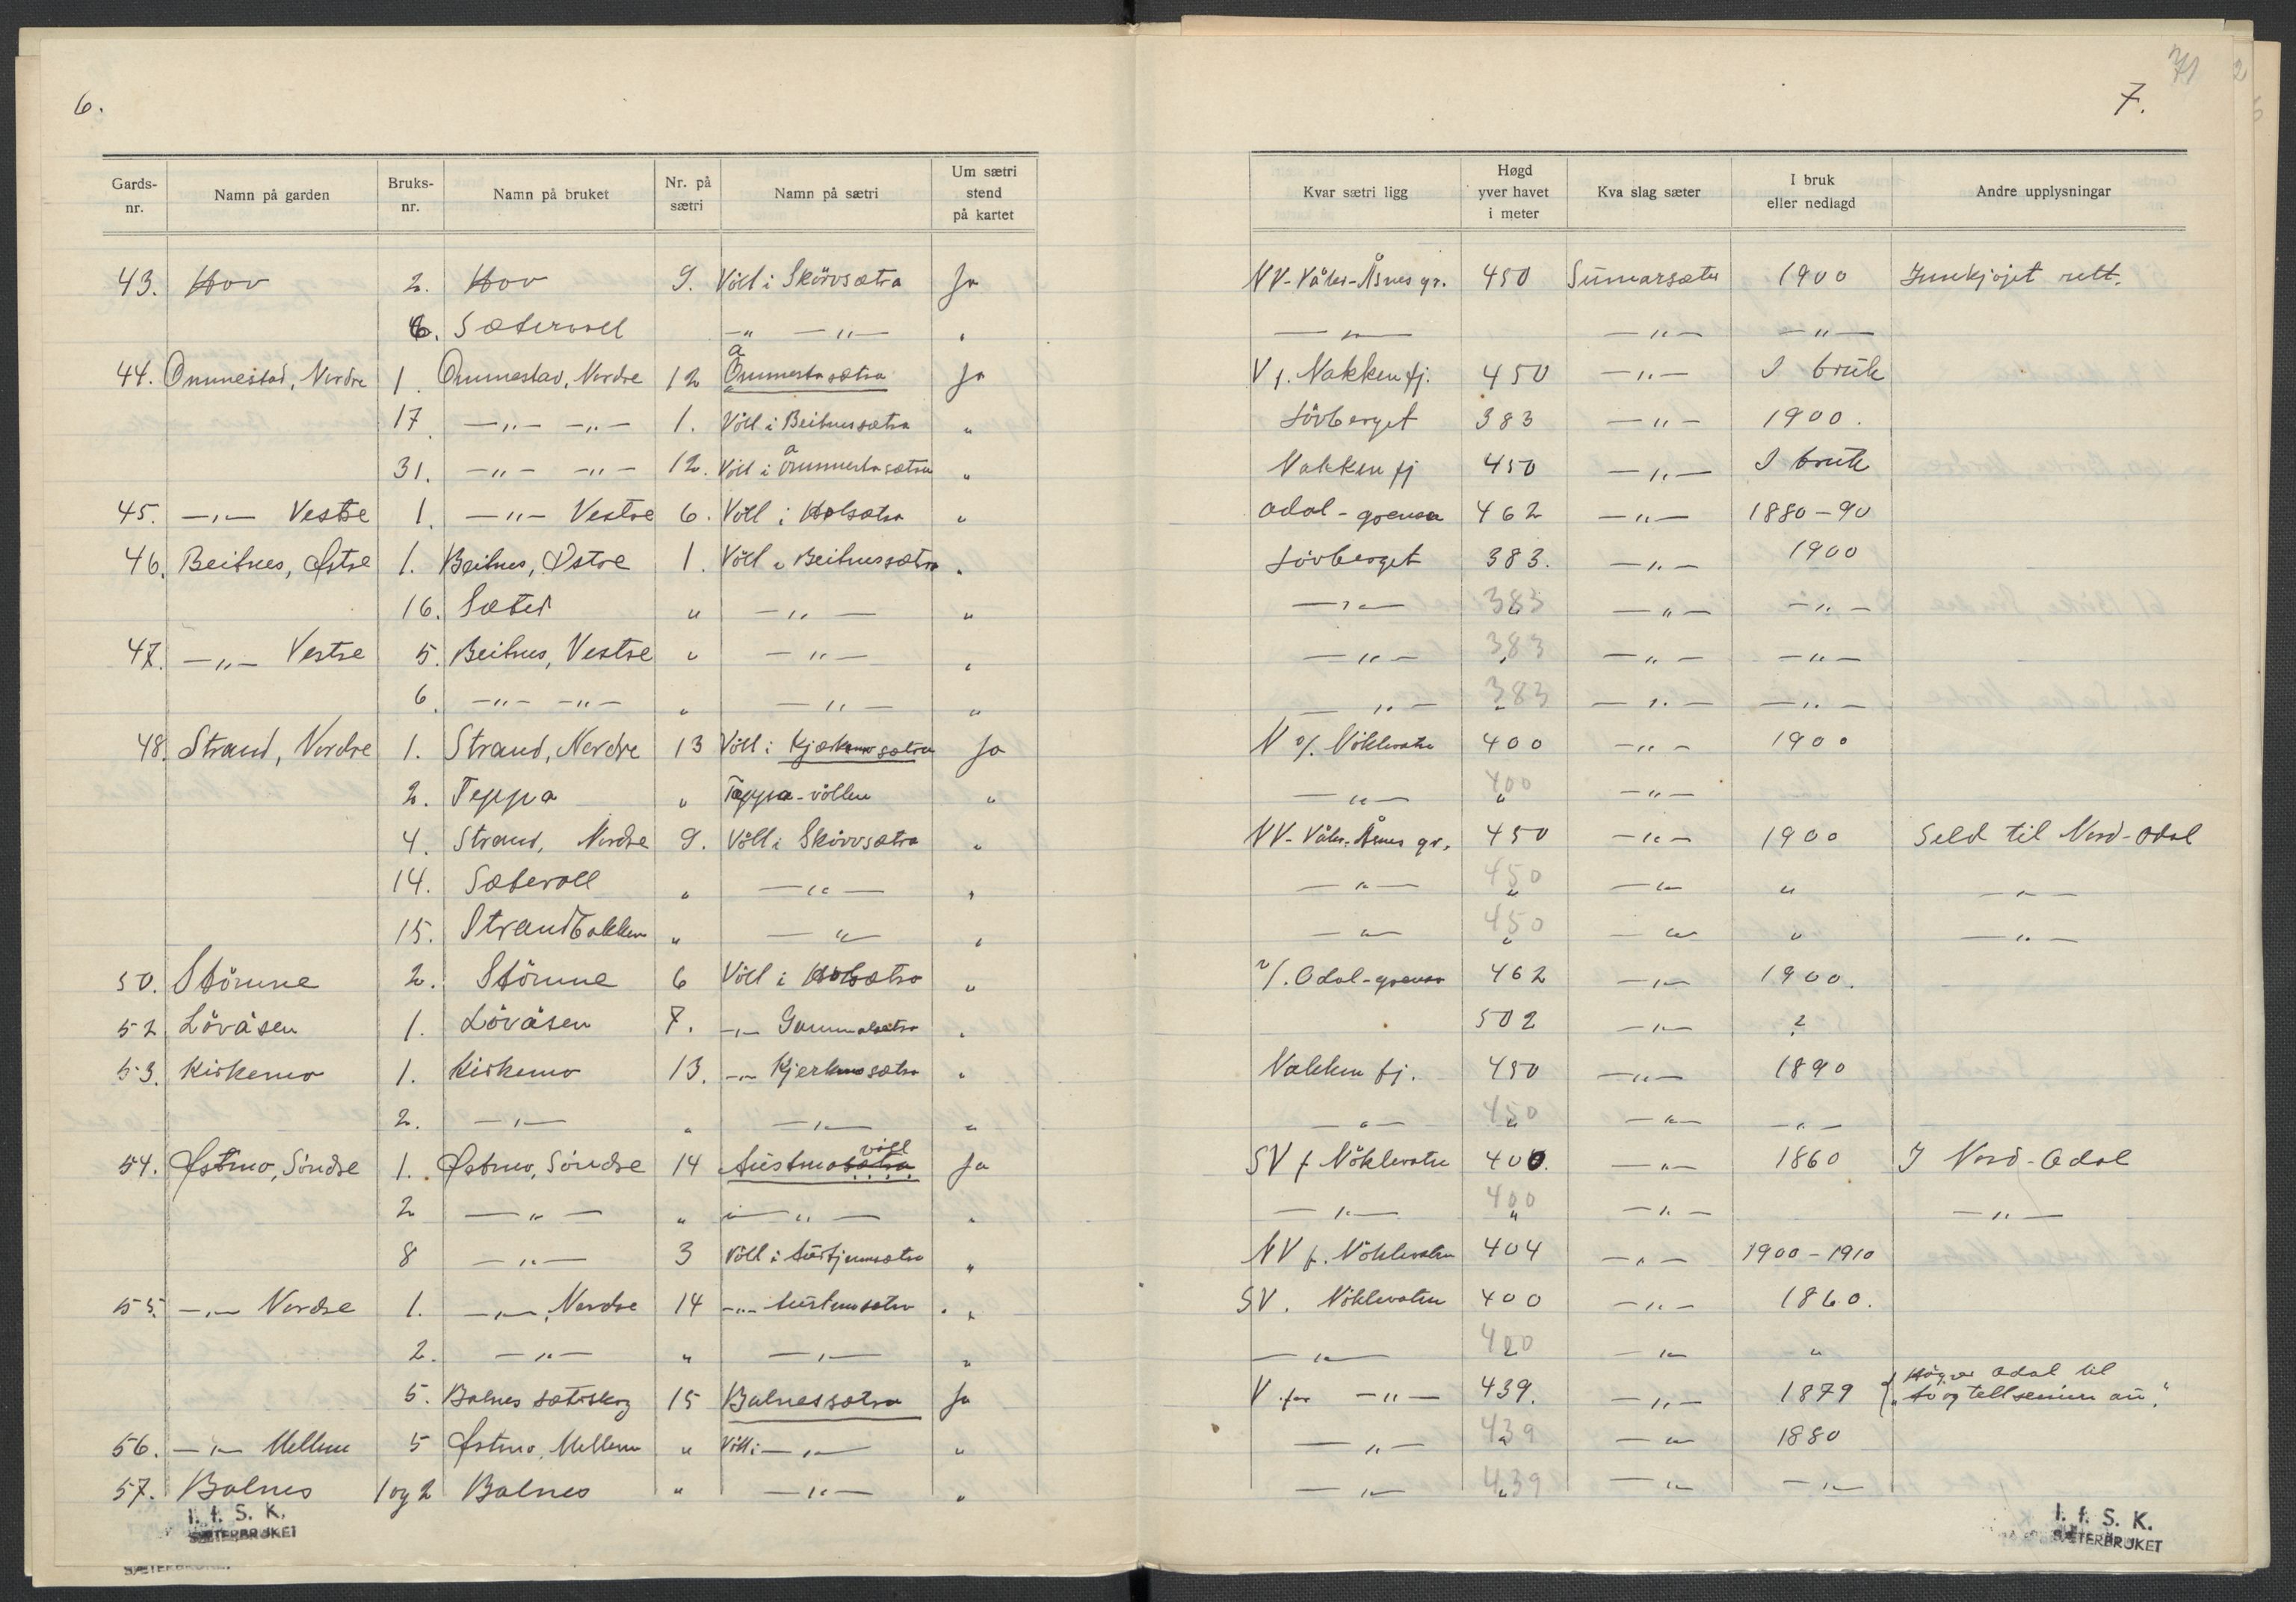 6.
Gards-nr. | Namn på garden | Bruks-nr. | Namn på bruket | Nr. på sætri | Namn på sætri | Um sætri stend på kartet
43. | Hov | 2. | Hov | 9. | Völl i Skörvsætra | Ja
6. | Sætervoll | -"- -"- | "
44. | Ommestad, Nordre | 1. | Ommestad, Nordre | 12 | Ommestasætra | Ja
17. | -"- -"- | 1. | Völl i Beitnessætra | "
31. | -"- -"- | 12. | Völl i Ommestasætra | "
45. | -"- Vestre | 1. | -"- Vestre | 6. | Völl i Holsætra | "
46. | Beitnes, Østre | 1. | Beitnes, Østre | 1. | Völl i Beitnessætra | "
16. | Sæter | " | -"- | "
47. | -"- Vestre | 5. | Beitnes, Vestre | " | -"- | "
6. | -"- -"- | " | -"- | "
48. | Strand, Nordre | 1. | Strand, Nordre | 13 | Völl i Kjærkmosætra | Ja
2. | Teppa | " | Tæppa-völlen | "
4. | Strand, Nordre | 9. | Völl i Skörvsætra | "
14. | Sætervoll | " | -"- | "
15. | Strandbakken | " | -"- | "
50. | Stömne | 2. | Stömne | 6 | Völl i Holsætra | "
52 | Lövåsen | 1. | Lövåsen | 7. | -"- Gammalsætra | "
53. | Kirkemo | 1. | Kirkemo | 13. | -"- Kjerkmosætra | "
2. | -"- | " | -"- | "
54. | Østmo, Söndre | 1. | Østmo, Söndre | 14 | Austmosætra völl | Ja
2 | -"- | " | -"- | "
8 | -"- | 3 | Völl i Austjennsætra | "
55. | -"- Nordre | 1. | -"- Nordre | 14 | -"- Austmosætra | "
2. | -"- | " | -"- | "
5. | Balnes sæterskog | 15 | Balnessætra | Ja
56. | -"- Mellem | 5 | Østmo, Mellem | " | Völl i -"- | "
57. | Balnes | 1 og 2 | Balnes | " | -"- | "
I. f. S. K.
SÆTERBRUKET
SÆTERBRUKET
7.
Kvar sætri ligg | Høgd yver havet i meter | Kva slag sæter | I bruk eller nedlagd | Andre upplysningar
NV-Våler-Åsnes gr. | 450 | Sumarsæter | 1900 | Innkjöpt rett.
-"- | -"- | -"-
V f. Nakken fj. | 450 | -"- | I bruk
Lövberget | 383 | -"- | 1900.
Nakken fj | 450 | -"- | I bruk
Odal-grensa | 462 | -"- | 1880-90
Lövberget | 383. | -"- | 1900
-"- | 383 " | -"- | -"-
-"- | 383 " | -"- | -"-
-"- | 383 " | -"- | -"-
N v/. Nöklevatn | 400 | -"- | 1900
-"- | 400 " | -"-
NV-Våler-Åsnes gr. | 450 | -"- | 1900 | Seld til Nord-Odal
-"- | 450 " | -"- | " | -"-
-"- | 450 " | -"- | " | -"-
v/. Odal-grensa | 462 | -"- | 1900.
502 | -"- | ?
Nakken fj. | 450 | -"- | 1890
-"- | 450 " | -"- | -"-
SV f. Nöklevatn | 400. | -"- | 1860 | I Nord-Odal
-"- | 400 " | -"- | -"-
NV f. Nöklevatn | 404 | -"- | 1900-1910
SV. Nöklevatn | 400 | -"- | 1860.
-"- | 400 | -"- | "
V for -"- | 439. | -"- | 1879 | Odal til
-"- | 439 " | -"- | 1880
-"- | 439 " | -"- | -"-
I. f. S. K.
SÆTERBRUKET